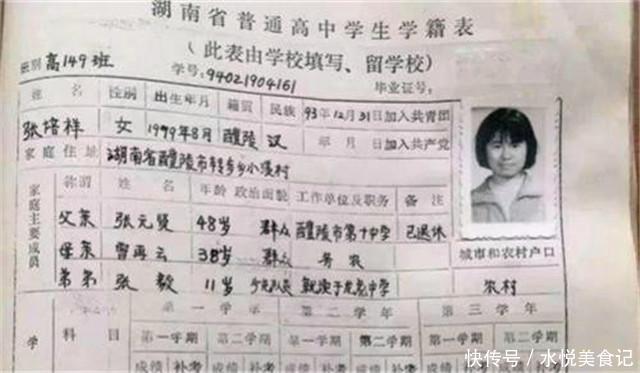 湖南省普通高中学生学籍表
(此表由学校填写、留学校)
班别高149班
学号:94021904161 毕业证号:
姓名 性别 出生年月 籍贯 民族 93年12月31日加入共青团
张培祥 女 1979年8月 醴陵 汉 年 月 日加入共产党
家庭住址 湖南省醴陵市转步乡小溪村
家庭主要成员 称谓 姓名 年龄 政治面貌 工作单位及职务 备注
父亲 张元贤 48岁 群众 醴陵市第十中学 已退休
母亲 曾再云 38岁 群众 务农
弟弟 张毅 11岁 少先队员 就读于 中学
城市和农村户口
农村
学 科目 第一学年 第二学年 第三学年
第一学期 第二学期 第一学期 第二学期 第一学期 第二学期
成绩 补考 成绩 补考 成绩 补考 成绩 补考 成绩 补考 成绩
快传号 / 水悦美食记